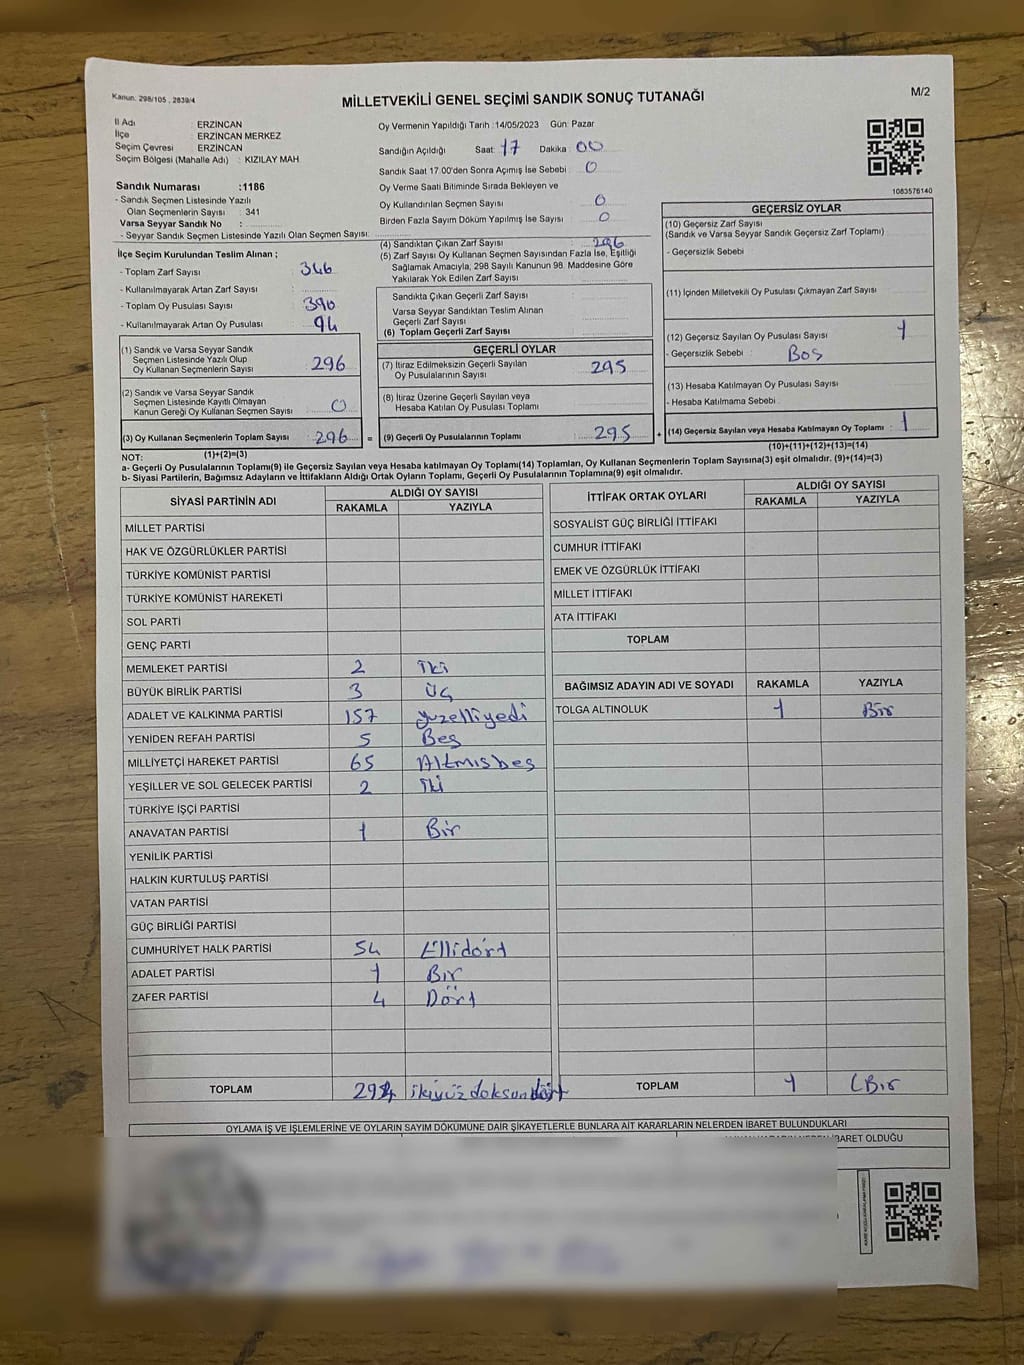 Kanun: 298/105 , 2839/4
MİLLETVEKİLİ GENEL SEÇİMİ SANDIK SONUÇ TUTANAĞI
M/2
İl Adı ERZİNCAN
İlçe ERZİNCAN MERKEZ
Seçim Çevresi ERZİNCAN
Seçim Bölgesi (Mahalle Adı) : KIZILAY MAH
Sandık Numarası :1186
- Sandık Seçmen Listesinde Yazılı
Olan Seçmenlerin Sayısı : 341
Varsa Seyyar Sandık No :
- Seyyar Sandık Seçmen Listesinde Yazılı Olan Seçmen Sayısı:
Oy Vermenin Yapıldığı Tarih :14/05/2023 Gün: Pazar
Sandığın Açıldığı Saat: 17 Dakika: 00
Sandık Saat 17.00'den Sonra Açımış İse Sebebi : 0
Oy Verme Saati Bitiminde Sırada Bekleyen ve
Oy Kullandırılan Seçmen Sayısı : 0
Birden Fazla Sayım Döküm Yapılmış İse Sayısı : 0
1083576140
İlçe Seçim Kurulundan Teslim Alınan ;
- Toplam Zarf Sayısı : 346
- Kullanılmayarak Artan Zarf Sayısı :
- Toplam Oy Pusulası Sayısı : 390
- Kullanılmayarak Artan Oy Pusulası : 94
(1) Sandık ve Varsa Seyyar Sandık
Seçmen Listesinde Yazılı Olup
Oy Kullanan Seçmenlerin Sayısı : 296
(2) Sandık ve Varsa Seyyar Sandık
Seçmen Listesinde Kayıtlı Olmayan
Kanun Gereği Oy Kullanan Seçmen Sayısı : 0
(3) Oy Kullanan Seçmenlerin Toplam Sayısı : 296 =
(1)+(2)=(3)
(4) Sandıktan Çıkan Zarf Sayısı : 296
(5) Zarf Sayısı Oy Kullanan Seçmen Sayısından Fazla İse, Eşitliği
Sağlamak Amacıyla, 298 Sayılı Kanunun 98. Maddesine Göre
Yakılarak Yok Edilen Zarf Sayısı :
Sandıkta Çıkan Geçerli Zarf Sayısı :
Varsa Seyyar Sandıktan Teslim Alınan
Geçerli Zarf Sayısı :
(6) Toplam Geçerli Zarf Sayısı :
GEÇERLİ OYLAR
(7) İtiraz Edilmeksizin Geçerli Sayılan
Oy Pusulalarının Sayısı : 295
(8) İtiraz Üzerine Geçerli Sayılan veya
Hesaba Katılan Oy Pusulası Toplamı :
(9) Geçerli Oy Pusulalarının Toplamı : 295 +
GEÇERSİZ OYLAR
(10) Geçersiz Zarf Sayısı
(Sandık ve Varsa Seyyar Sandık Geçersiz Zarf Toplamı) :
- Geçersizlik Sebebi :
(11) İçinden Milletvekili Oy Pusulası Çıkmayan Zarf Sayısı :
(12) Geçersiz Sayılan Oy Pusulası Sayısı : 1
- Geçersizlik Sebebi : Boş
(13) Hesaba Katılmayan Oy Pusulası Sayısı :
- Hesaba Katılmama Sebebi :
(14) Geçersiz Sayılan veya Hesaba Katılmayan Oy Toplamı : 1
(10)+(11)+(12)+(13)=(14)
NOT:
a- Geçerli Oy Pusulalarının Toplamı(9) ile Geçersiz Sayılan veya Hesaba katılmayan Oy Toplamı(14) Toplamları, Oy Kullanan Seçmenlerin Toplam Sayısına(3) eşit olmalıdır. (9)+(14)=(3)
b- Siyasi Partilerin, Bağımsız Adayların ve İttifakların Aldığı Ortak Oyların Toplamı, Geçerli Oy Pusulalarının Toplamına(9) eşit olmalıdır.
SİYASİ PARTİNİN ADI ALDIĞI OY SAYISI
RAKAMLA YAZIYLA
MİLLET PARTİSİ
HAK VE ÖZGÜRLÜKLER PARTİSİ
TÜRKİYE KOMÜNİST PARTİSİ
TÜRKİYE KOMÜNİST HAREKETİ
SOL PARTİ
GENÇ PARTİ
MEMLEKET PARTİSİ 2 İki
BÜYÜK BİRLİK PARTİSİ 3 Üç
ADALET VE KALKINMA PARTİSİ 157 yüzelliyedi
YENİDEN REFAH PARTİSİ 5 Beş
MİLLİYETÇİ HAREKET PARTİSİ 65 Altmışbeş
YEŞİLLER VE SOL GELECEK PARTİSİ 2 İki
TÜRKİYE İŞÇİ PARTİSİ
ANAVATAN PARTİSİ 1 Bir
YENİLİK PARTİSİ
HALKIN KURTULUŞ PARTİSİ
VATAN PARTİSİ
GÜÇ BİRLİĞİ PARTİSİ
CUMHURİYET HALK PARTİSİ 54 Ellidört
ADALET PARTİSİ 1 Bir
ZAFER PARTİSİ 4 Dört
TOPLAM 294 ikiyüzdoksandört
İTTİFAK ORTAK OYLARI ALDIĞI OY SAYISI
RAKAMLA YAZIYLA
SOSYALİST GÜÇ BİRLİĞİ İTTİFAKI
CUMHUR İTTİFAKI
EMEK VE ÖZGÜRLÜK İTTİFAKI
MİLLET İTTİFAKI
ATA İTTİFAKI
TOPLAM
BAĞIMSIZ ADAYIN ADI VE SOYADI RAKAMLA YAZIYLA
TOLGA ALTINOLUK 1 Bir
TOPLAM 1 (Bir
OYLAMA İŞ VE İŞLEMLERİNE VE OYLARIN SAYIM DÖKÜMÜNE DAİR ŞİKAYETLERLE BUNLARA AİT KARARLARIN NELERDEN İBARET BULUNDUKLARI
İBARET OLDUĞU